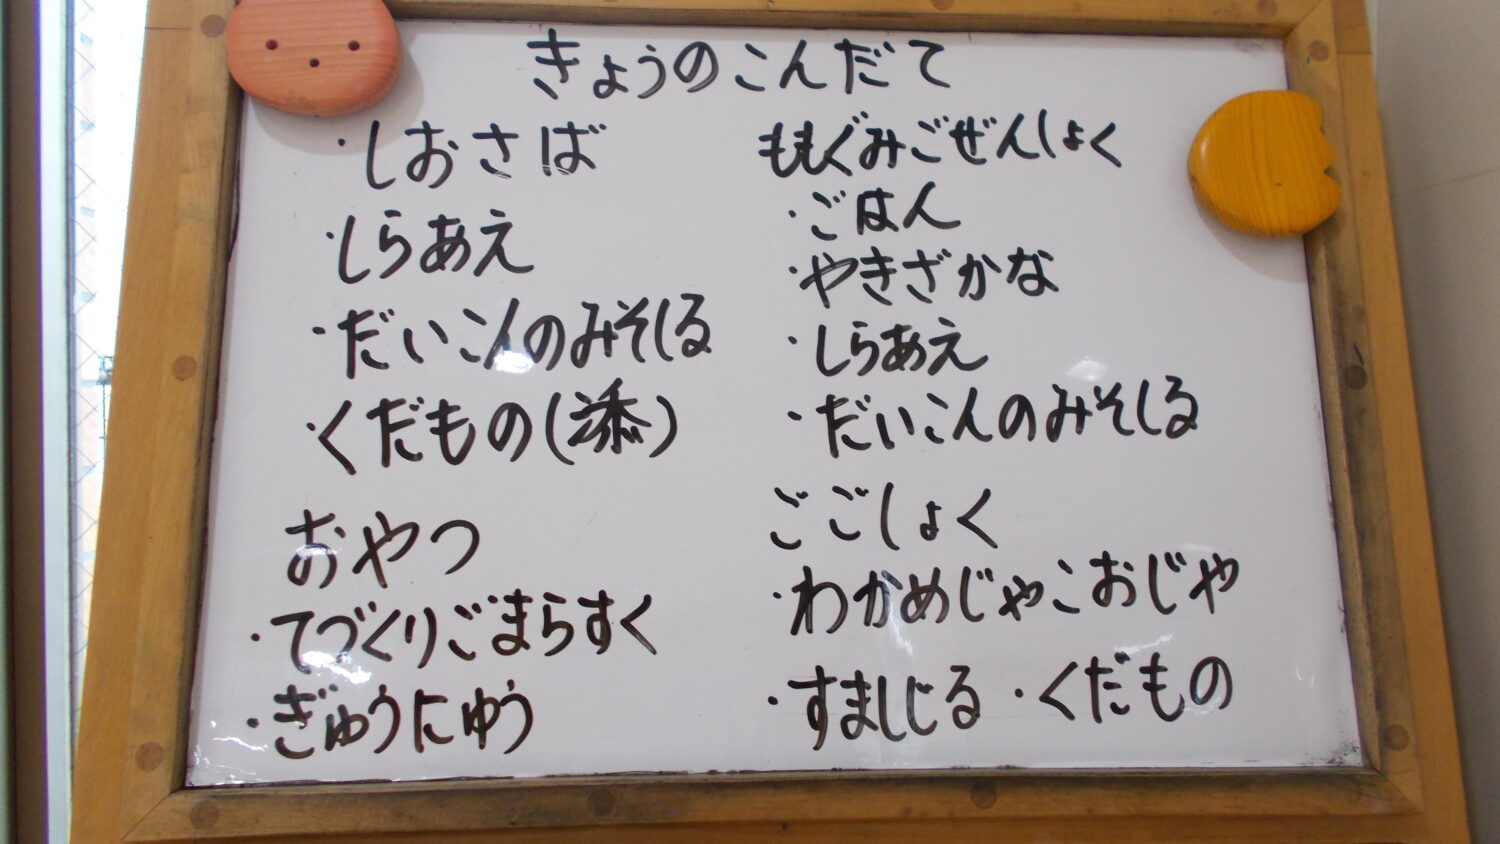 きょうのこんだて
・しおさば
・しらあえ
・だいこんのみそしる
・くだもの(添)
おやつ
・てづくりごまらすく
・ぎゅうにゅう
ももぐみごぜんしょく
・ごはん
・やきざかな
・しらあえ
・だいこんのみそしる
ごごしょく
・わかめじゃこおじや
・すましじる ・くだもの